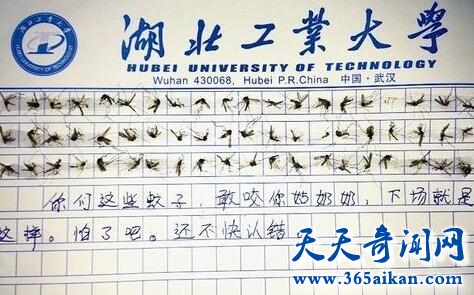 湖北工業大學
HUBEI UNIVERSITY OF TECHNOLOGY
Wuhan 430068, Hubei P.R.China 中国·武汉
你们这些蚊子，敢咬你姑奶奶，下场就是
这样。怕了吧。还不快认错
天天奇闻网
www.365aikan.com